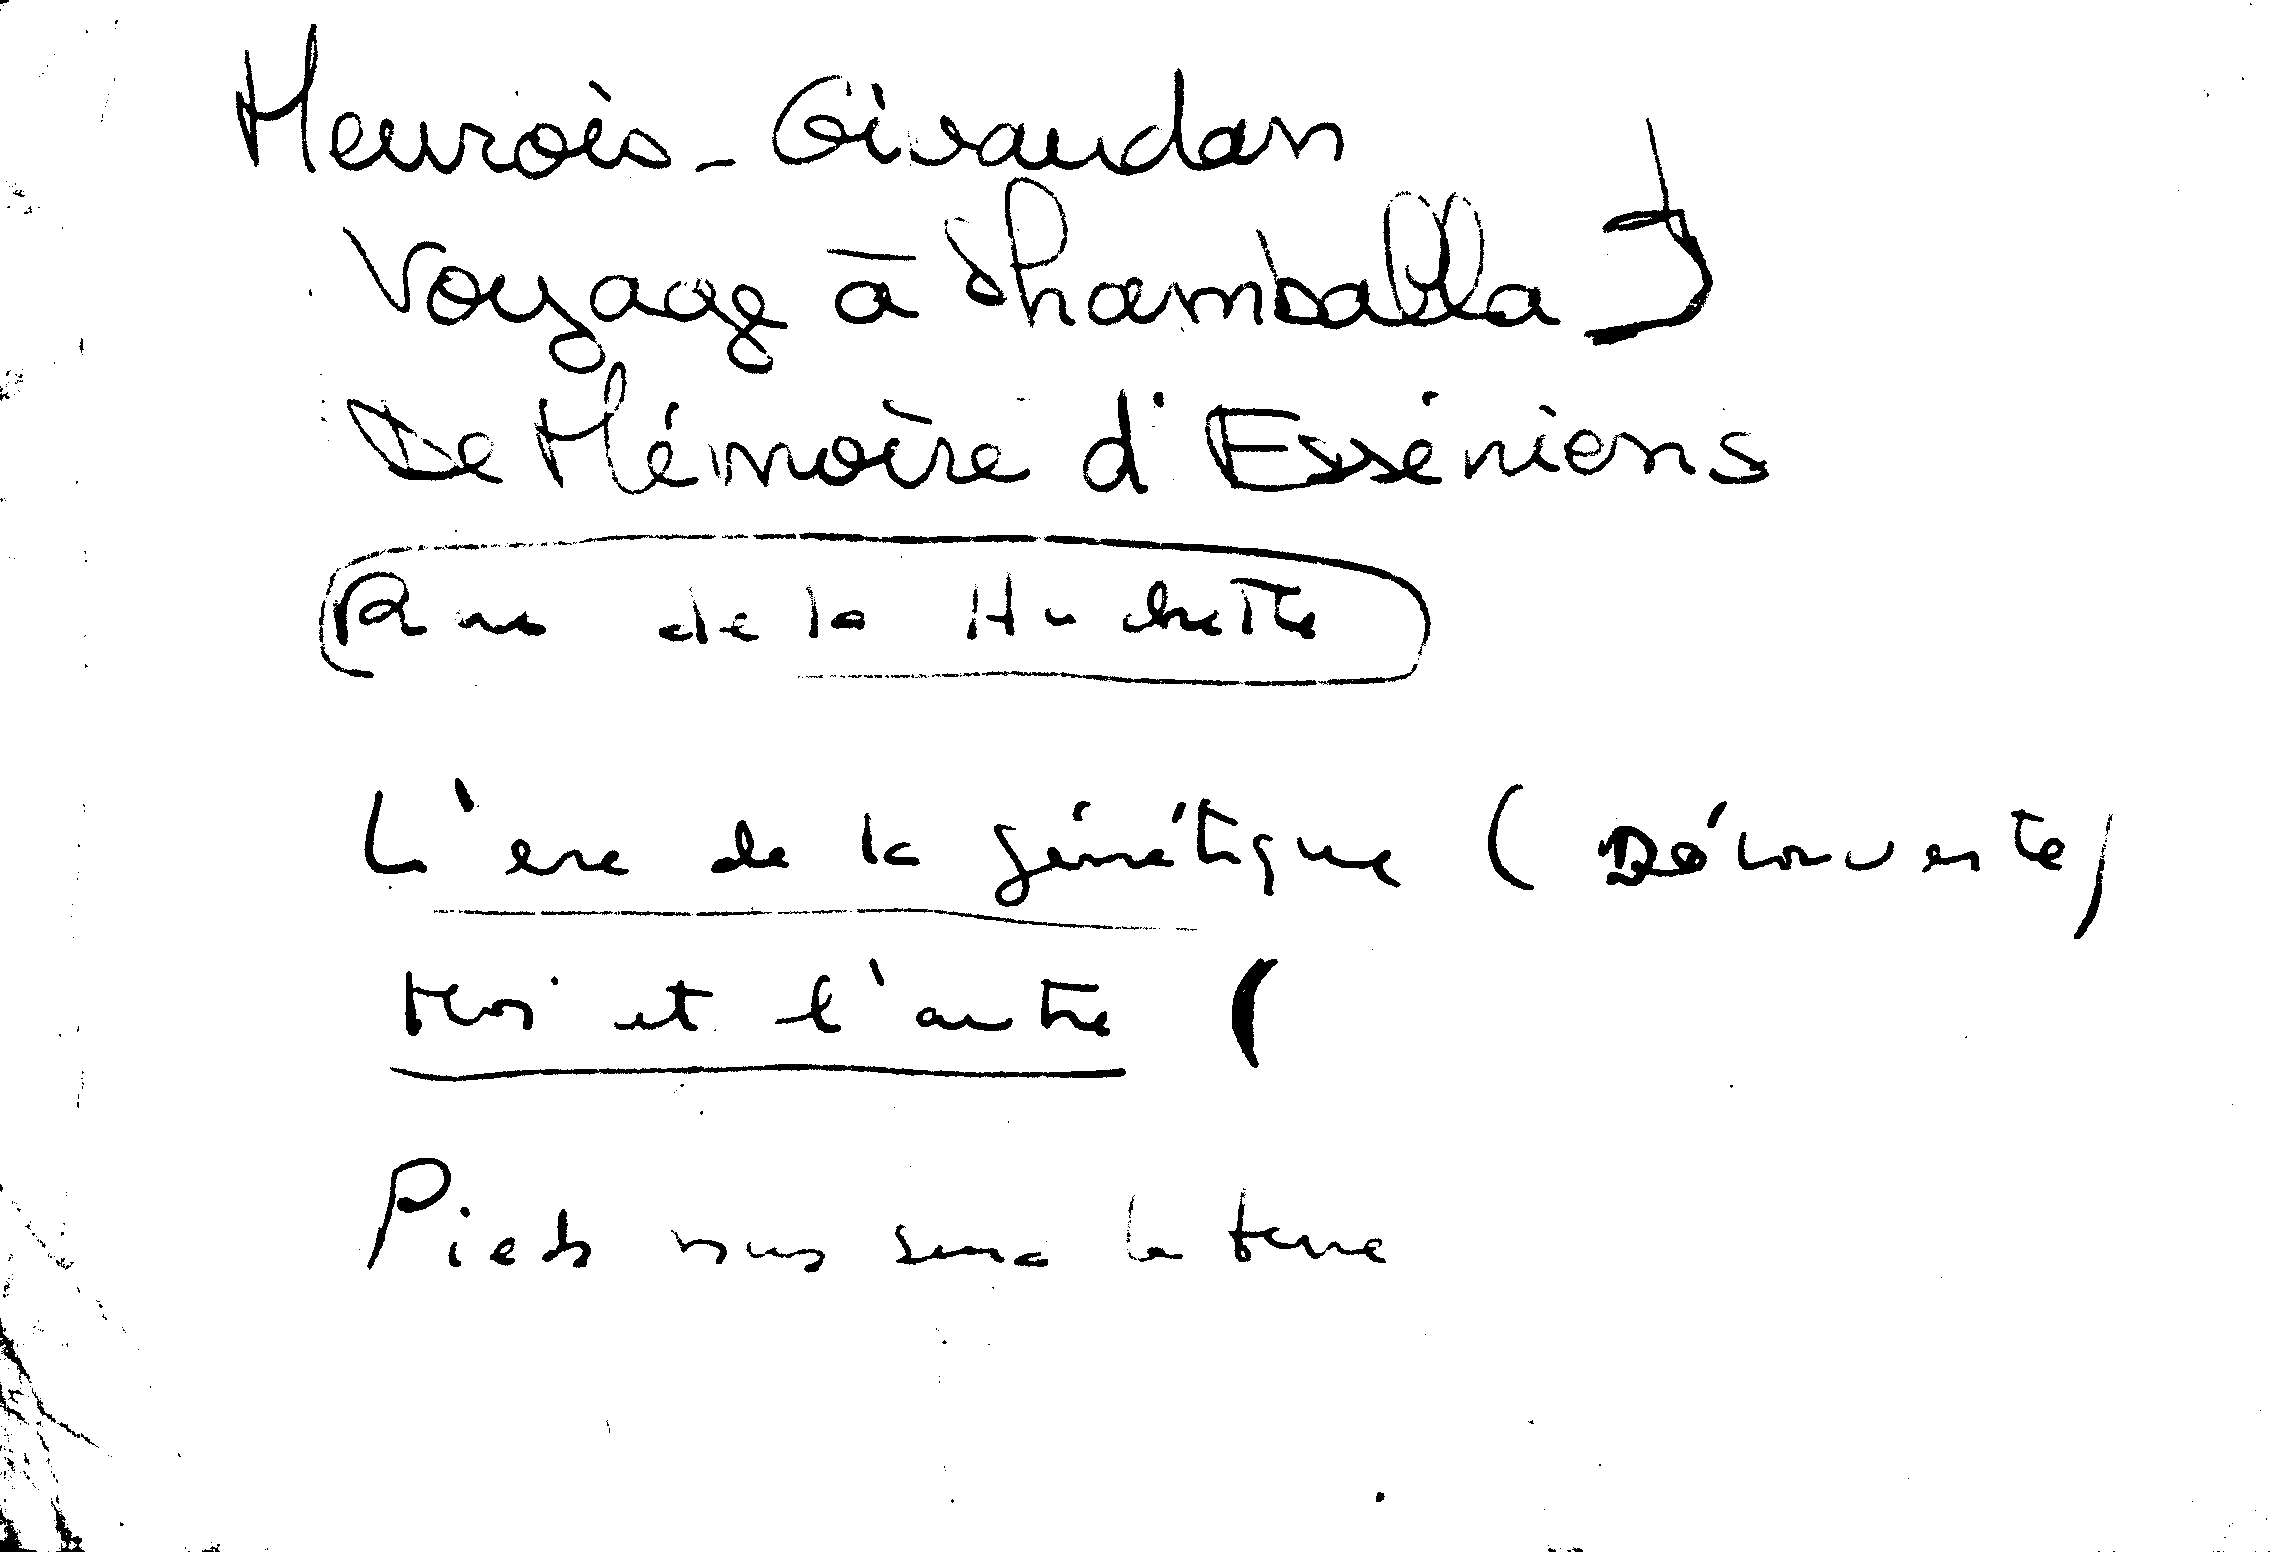 Meurois-Givaudan
Voyage à Shamballa
De Mémoire d'Esséniens
Rue de la Huchette
L'ère de la génétique (Découverte)
Moi et l'autre (
Pieds nus sur la terre